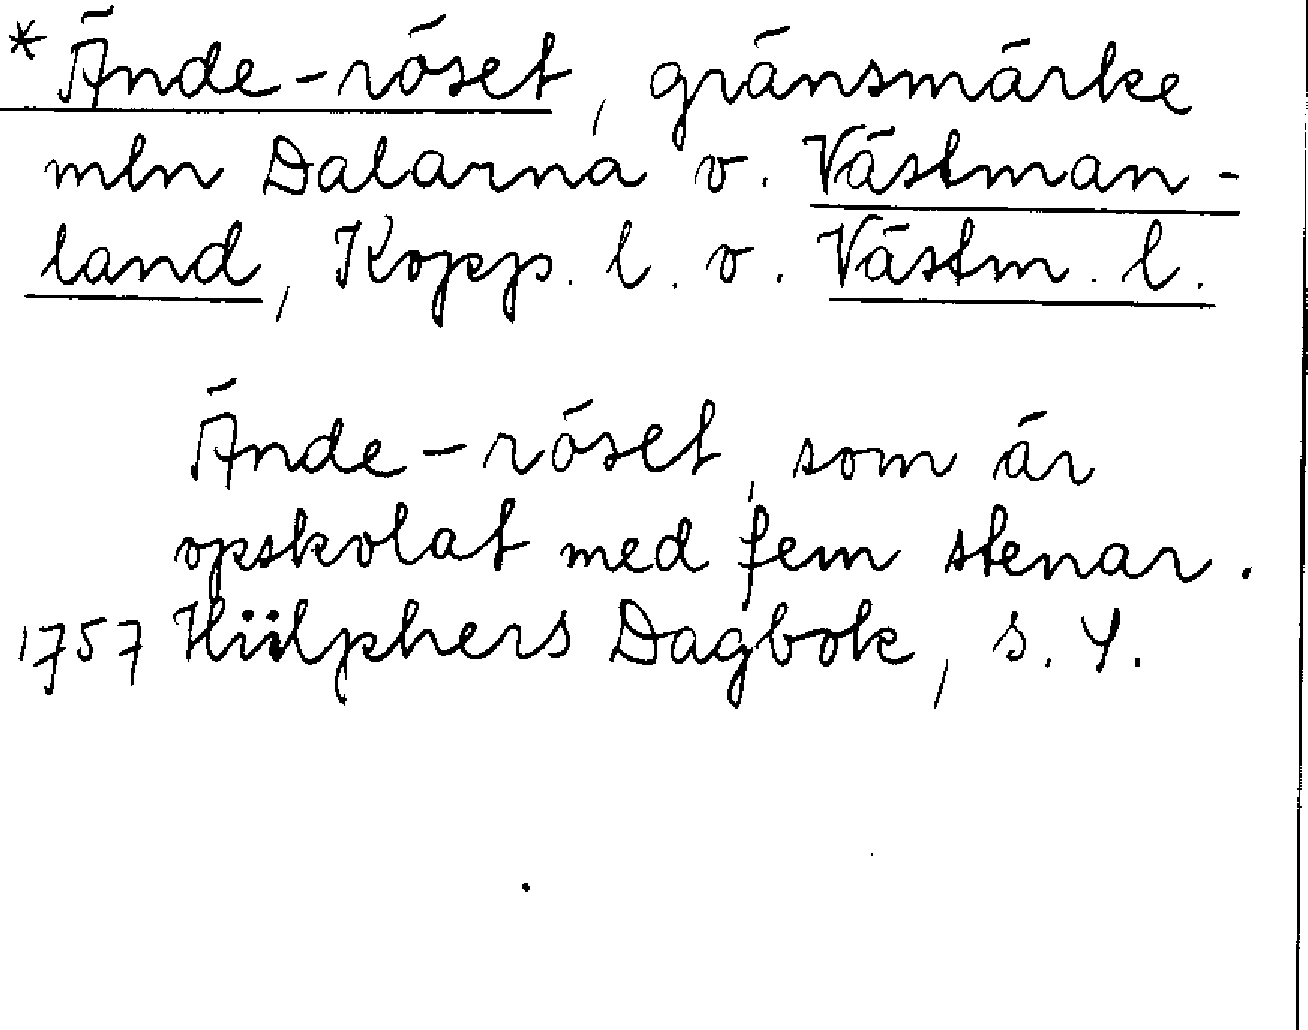 *Ände-röset, gränsmärke
mln Dalarna o. Västman-
land, Kopp. l. o. Västm. l.
Ände-röset, som är
opskolat med fem stenar.
1757 Hülphers Dagbok, s. 4.